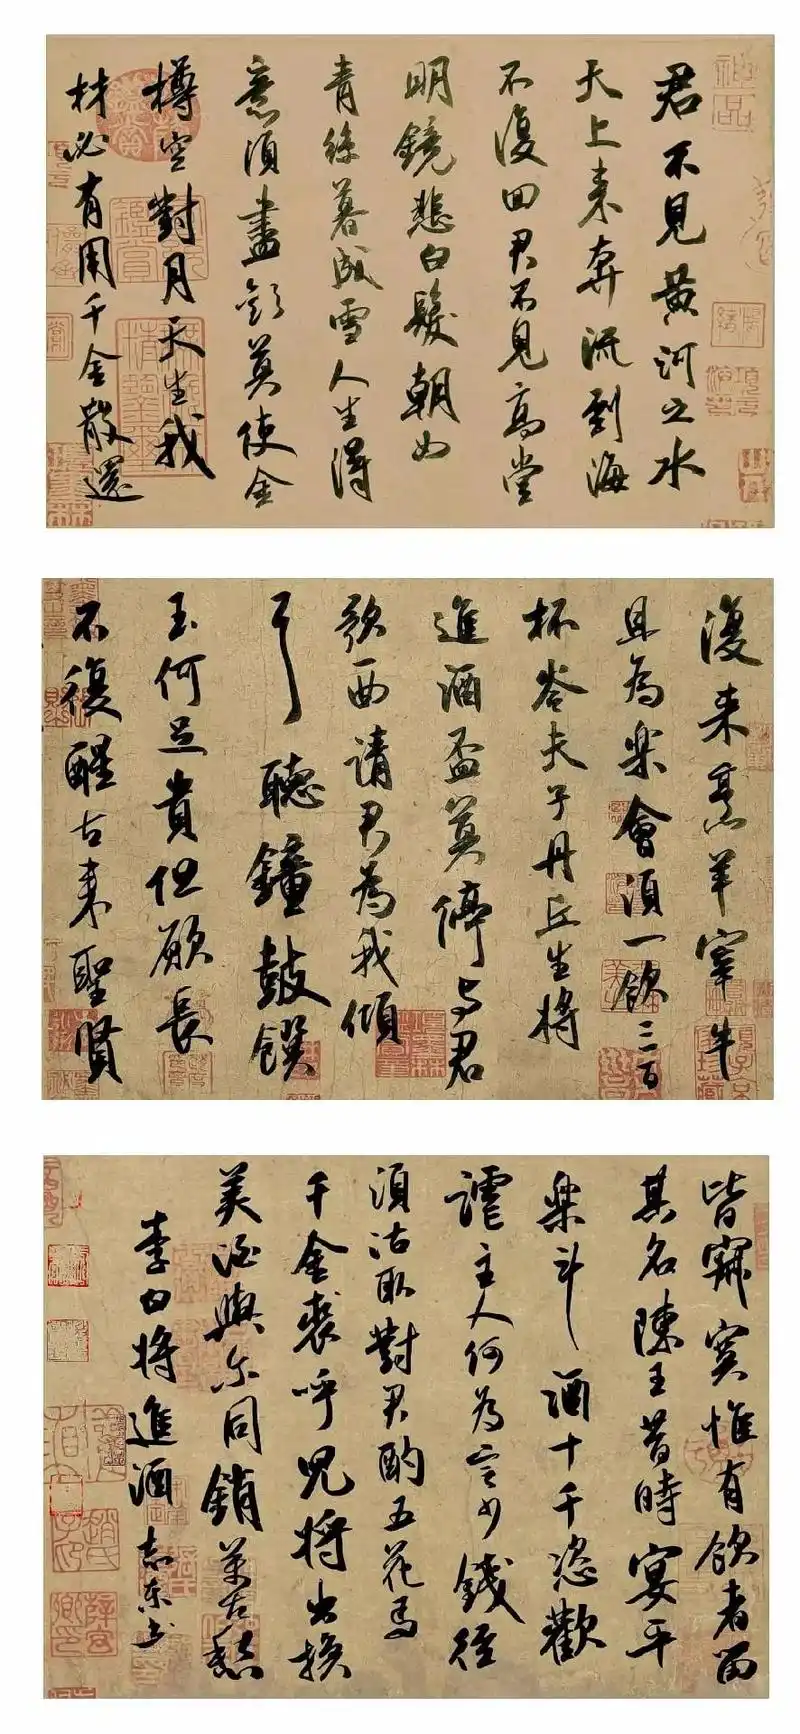 君不見黃河之水
天上來奔流到海
不復回君不見高堂
明鏡悲白髮朝如
青絲暮成雪人生得
意須盡歡莫使金
樽空對月天生我
材必有用千金散還
復來烹羊宰牛
且為樂會須一飲三百
杯岑夫子丹丘生將
進酒盃莫停与君
歌一曲請君為我傾
耳聽鐘鼓饌
玉何足貴但願長
不復醒古來聖賢
皆寂寞惟有飲者留
其名陳王昔時宴平
樂斗酒十千恣歡
謔主人何為言少錢徑
須沽取對君酌五花馬
千金裘呼兒將出換
美酒與尔同銷萬古愁
李白將進酒志東書
神品